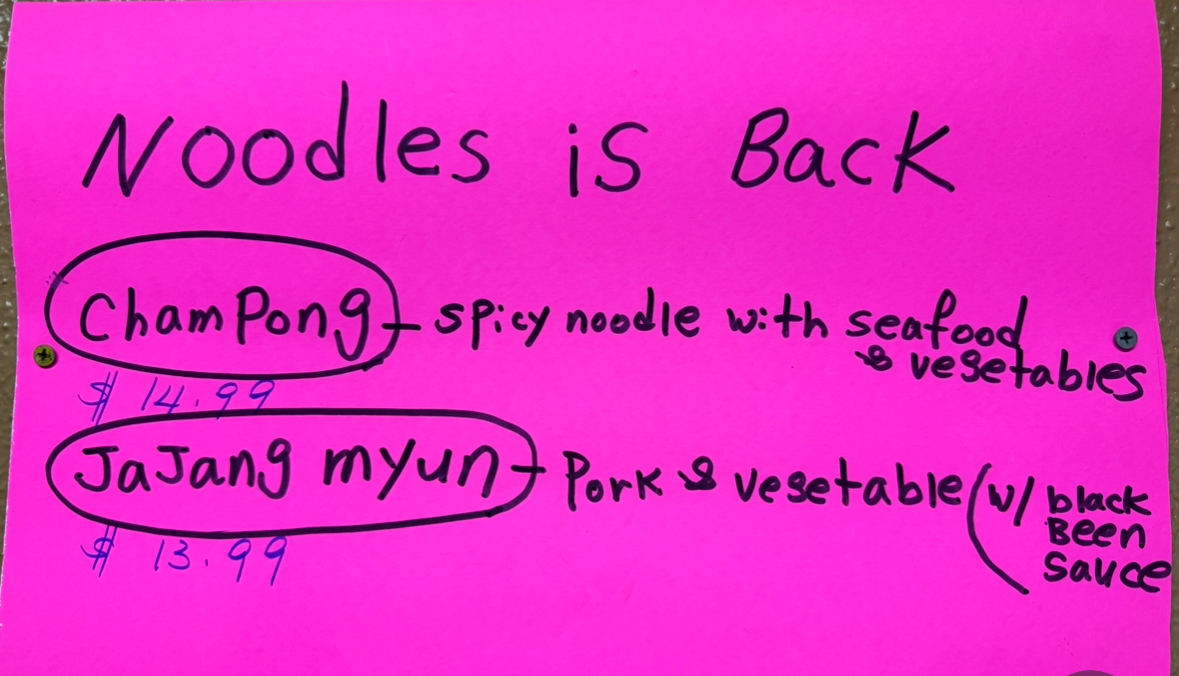 Noodles is Back
ChamPong - spicy noodle with seafood
& vegetables
$ 14.99
JaJang myun - Pork & vegetable (w/ black
Been
sauce
$ 13.99